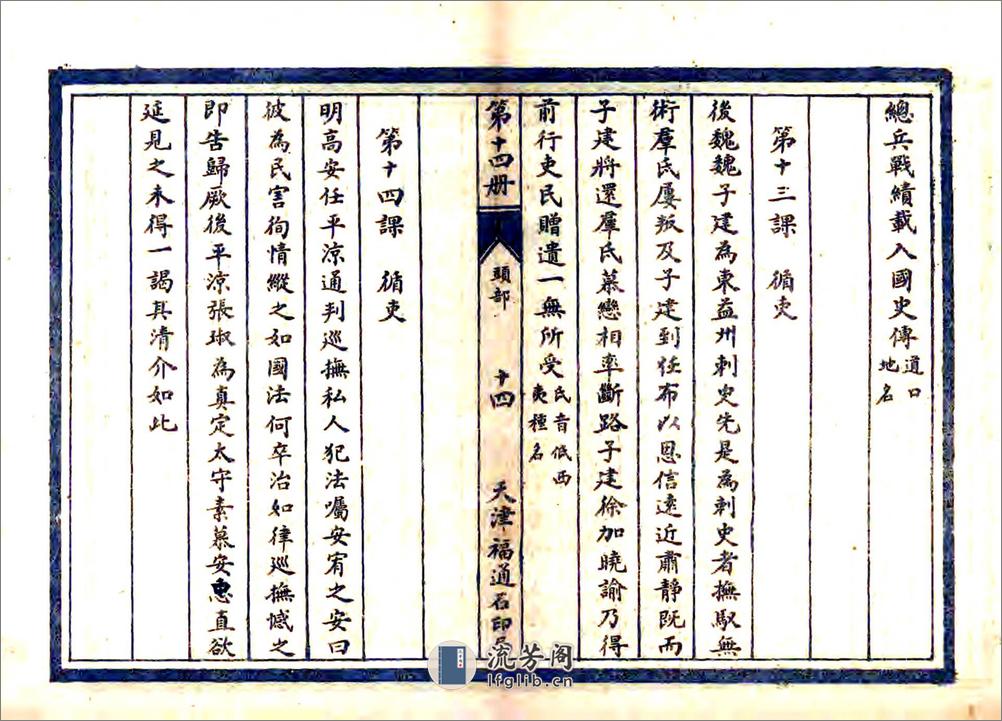 總兵戰績載入國史傳道口地名
第十三課　循吏
後魏魏子建為東益州刺史先是為刺史者撫馭無
術羣氐屢叛及子建到任布以恩信遠近肅靜既而
子建將還羣氐慕戀相率斷路子建徐加曉諭乃得
前行吏民贈遺一無所受氐音低西夷種名
第十四册
頭部
十四
天津福通石印局
第十四課　循吏
明高安任平涼通判巡撫私人犯法囑安宥之安曰
彼為民害徇情縱之如國法何卒治如律巡撫憾之
即告歸厥後平涼張琡為真定太守素慕安惠直欲
延見之未得一謁其清介如此
流芳阁
lfglib.cn